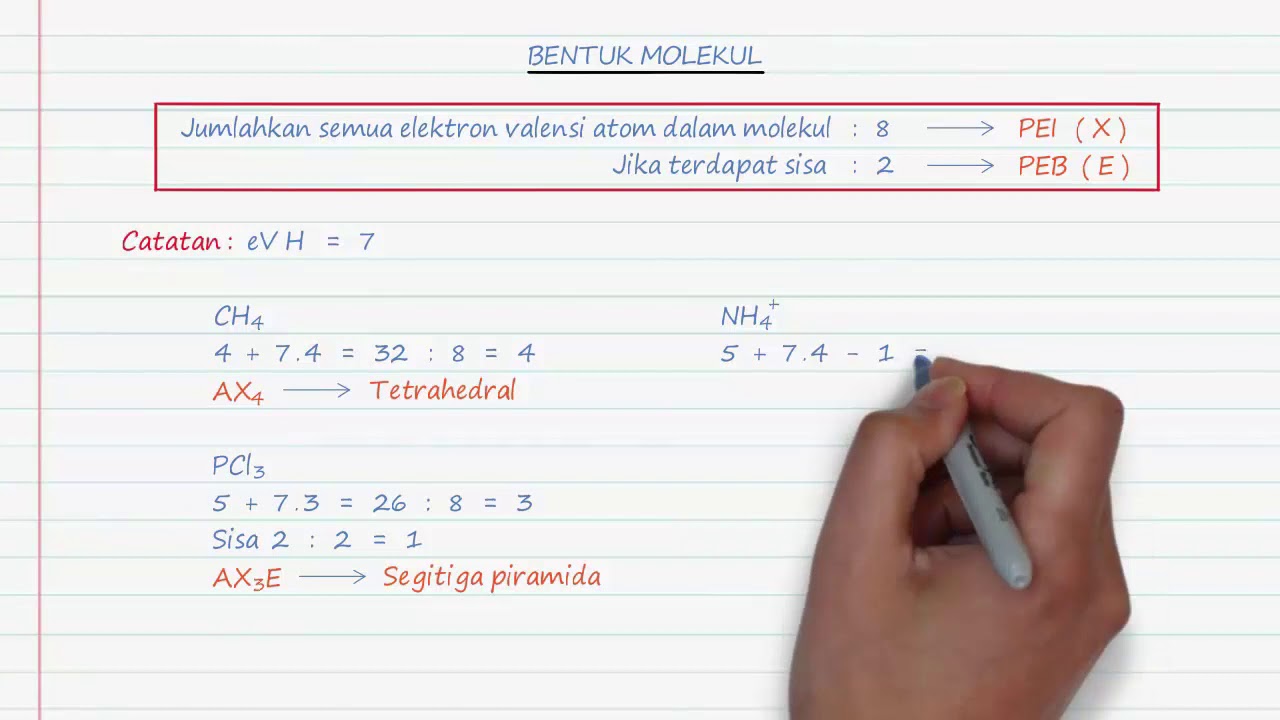 BENTUK MOLEKUL
Jumlahkan semua elektron valensi atom dalam molekul : 8 → PEI ( X )
Jika terdapat sisa : 2 → PEB ( E )
Catatan : eV H = 7
CH₄
4 + 7.4 = 32 : 8 = 4
AX₄ → Tetrahedral
NH₄⁺
5 + 7.4 - 1 =
PCl₃
5 + 7.3 = 26 : 8 = 3
Sisa 2 : 2 = 1
AX₃E → Segitiga piramida